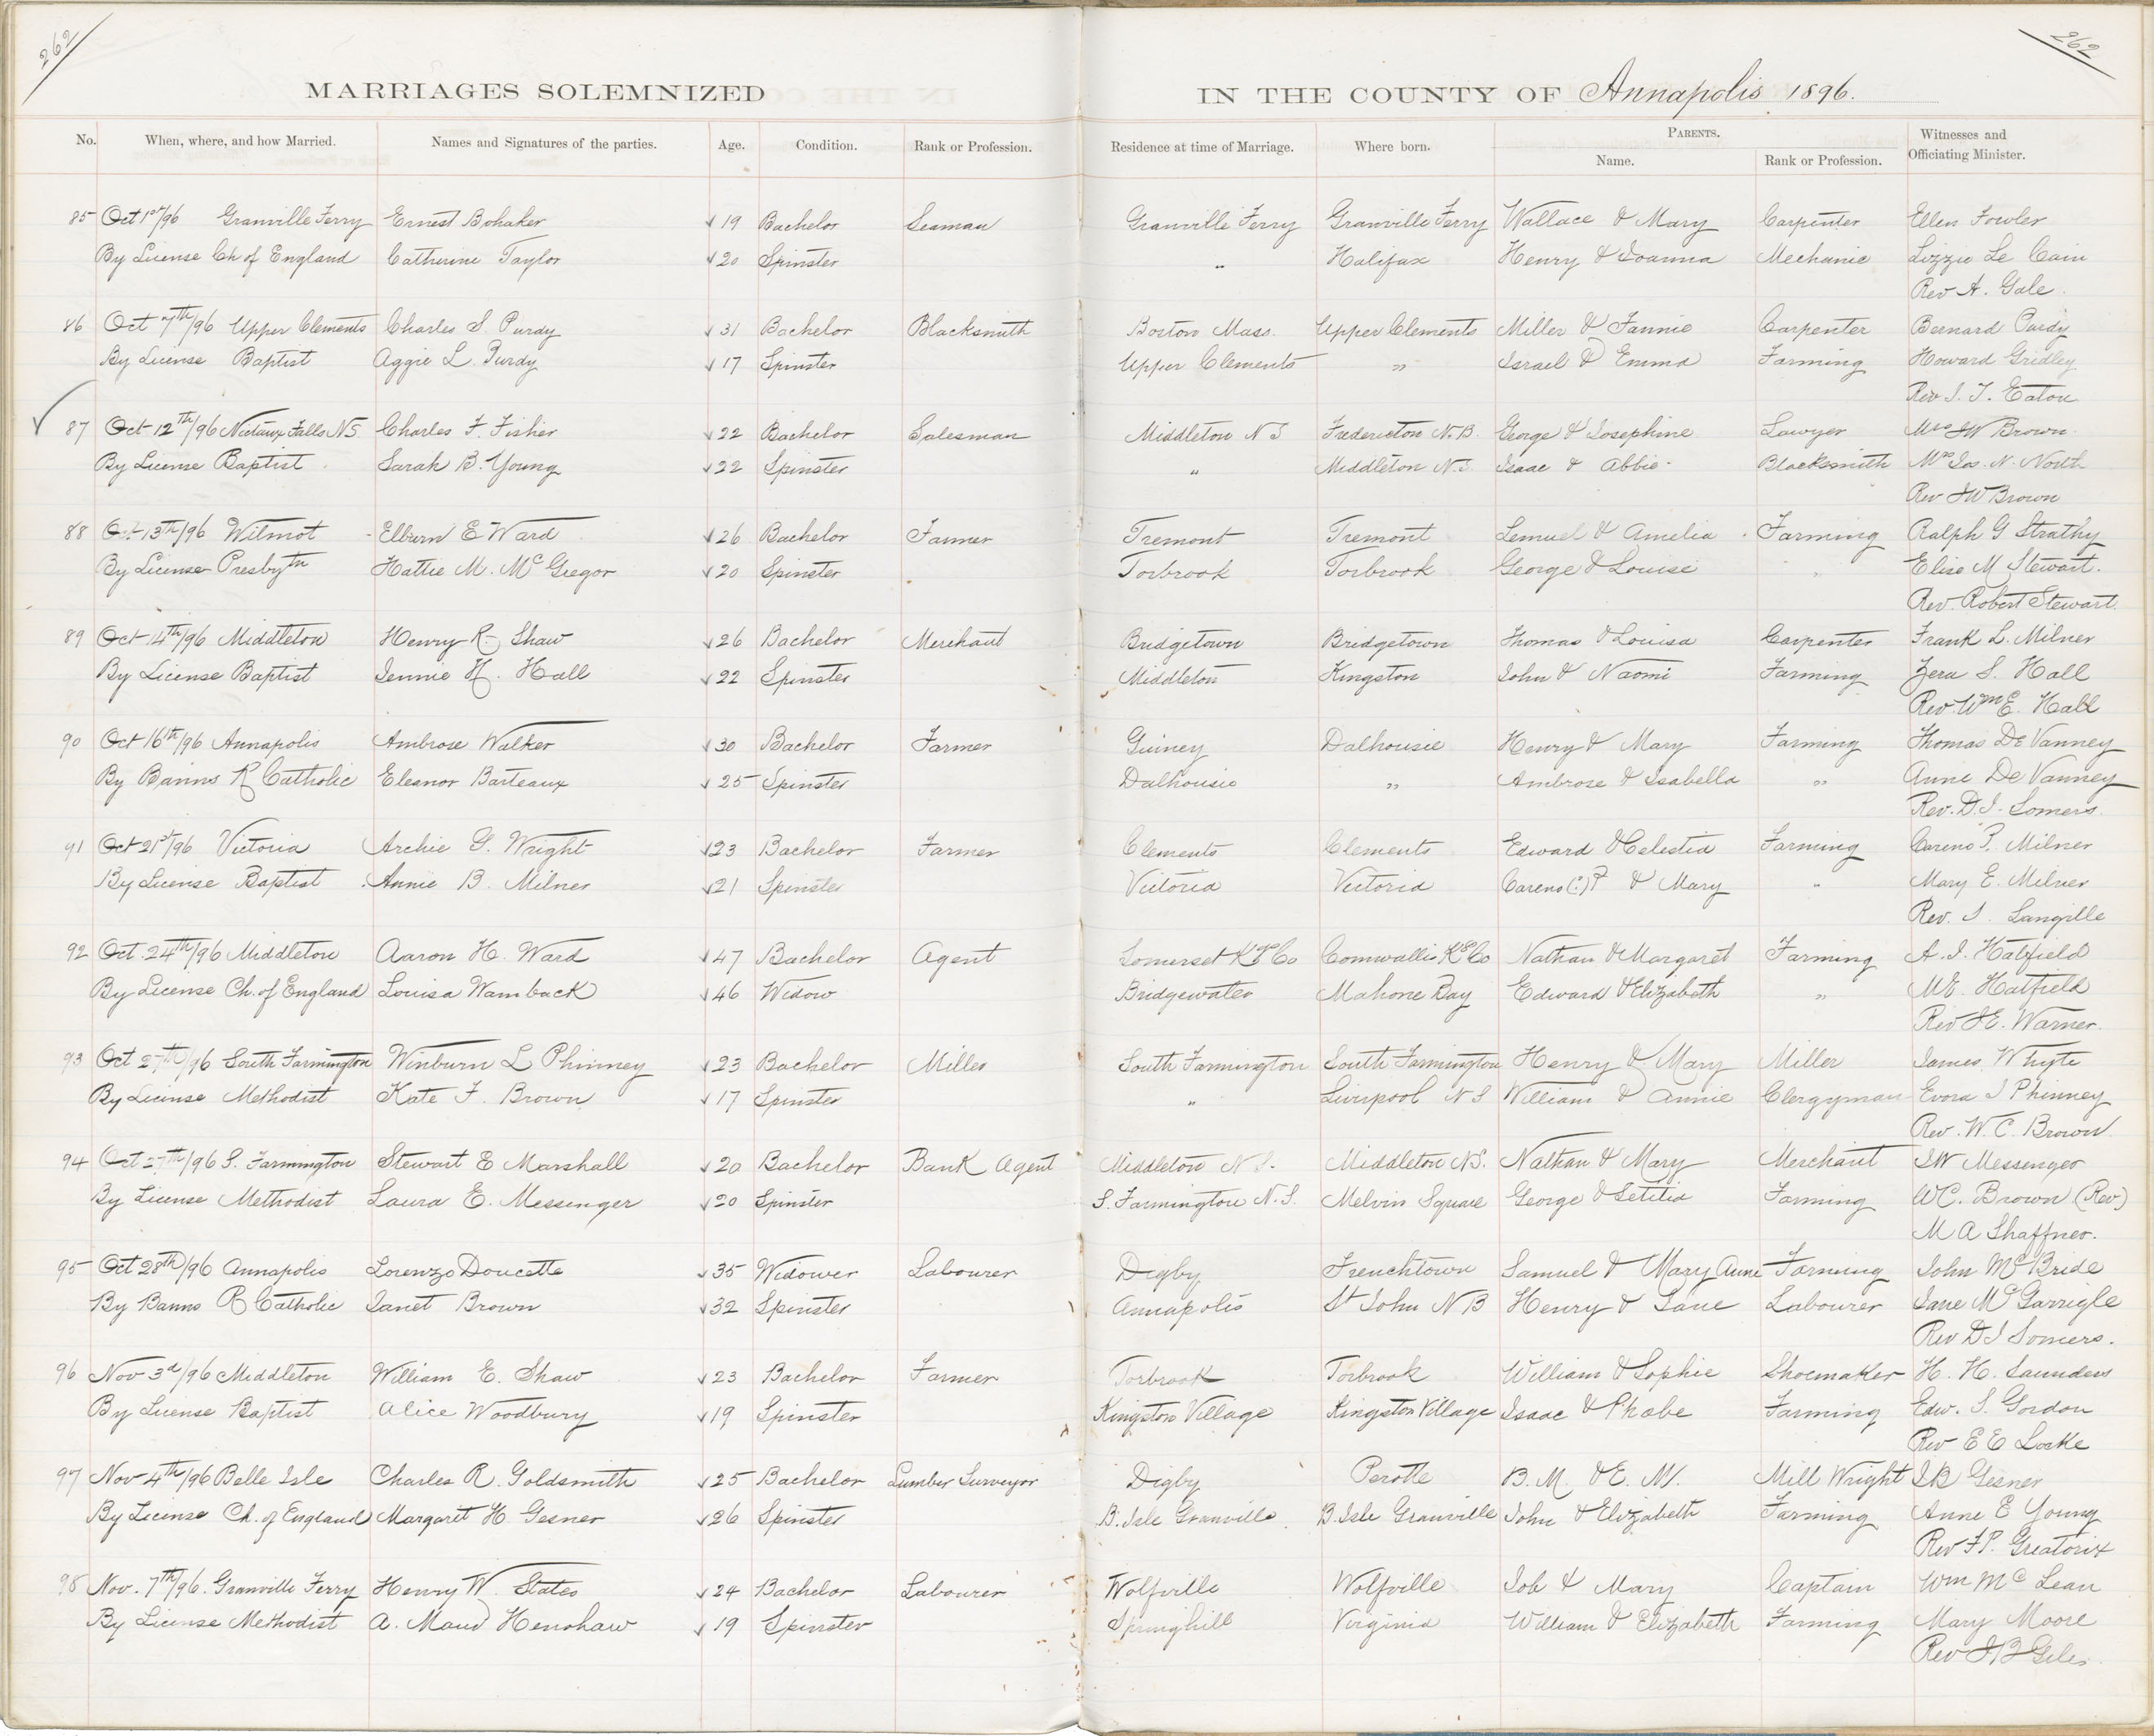 262
262
MARRIAGES SOLEMNIZED IN THE COUNTY OF Annapolis 1896.
No. When, where, and how Married. Names and Signatures of the parties. Age. Condition. Rank or Profession. Residence at time of Marriage. Where born. PARENTS. Name. Rank or Profession. Witnesses and Officiating Minister.
85 Oct 1st/96 Granville Ferry Ernest Bohaker 19 Bachelor Seaman Granville Ferry Granville Ferry Wallace & Mary Carpenter Ellen Fowler
By License Ch of England Catherine Taylor 20 Spinster " Halifax Henry & Joanna Mechanic Lizzie Le Cain
Rev A. Gale.
86 Oct 7th/96 Upper Clements Charles S. Purdy 31 Bachelor Blacksmith Boston Mass. Upper Clements Miller & Fannie Carpenter Bernard Purdy
By License Baptist Aggie L. Purdy 17 Spinster Upper Clements " Israel & Emma Farming Howard Gridley
Rev J. T. Eaton
87 Oct 12th/96 Nictaux Falls NS Charles F. Fisher 22 Bachelor Salesman Middleton N S Fredericton N.B. George & Josephine Lawyer Mrs JW Brown
By License Baptist Sarah B. Young 22 Spinster " Middleton N.S. Isaac & Abbie Blacksmith Mrs Jas. N. North
Rev JW Brown
88 Oct 13th/96 Wilmot Elburn E Ward 26 Bachelor Farmer Tremont Tremont Lemuel & Amelia Farming Ralph G Strathy
By License Presbytn Hattie M. McGregor 20 Spinster Torbrook Torbrook George & Louise " Elise M Stewart.
Rev. Robert Stewart.
89 Oct 14th/96 Middleton Henry R. Shaw 26 Bachelor Merchant Bridgetown Bridgetown Thomas & Louisa Carpenter Frank L. Milner
By License Baptist Jennie H. Hall 22 Spinster Middleton Kingston John & Naomi Farming Zera S. Hall
Rev. Wm E. Hall
90 Oct 16th/96 Annapolis Ambrose Walker 30 Bachelor Farmer Guiney Dalhousie Henry & Mary Farming Thomas De Vanney
By Banns R Catholic Eleanor Barteaux 25 Spinster Dalhousie " Ambrose & Isabella " Annie De Vanney
Rev. D.J. Somers.
91 Oct 21st/96 Victoria Archie G. Wright 23 Bachelor Farmer Clements Clements Edward & Celestia Farming Careno P. Milner
By License Baptist Annie B. Milner 21 Spinster Victoria Victoria Careno(?) P & Mary " Mary E. Milner
Rev. J. Langille
92 Oct. 24th/96 Middleton Aaron H. Ward 47 Bachelor Agent Somerset Kgs Co Cornwallis Kgs Co Nathan & Margaret Farming A. J. Hatfield
By License Ch. of England Louisa Wamback 46 Widow Bridgewater Mahone Bay Edward & Elizabeth " ME. Hatfield
Rev JE. Warner.
93 Oct 27th/96 South Farmington Winburn L Phinney 23 Bachelor Miller South Farmington South Farmington Henry & Mary Miller James Whyte
By License Methodist Kate F. Brown 17 Spinster " Liverpool N S William & Annie Clergyman Evora J Phinney
Rev. W. C. Brown
94 Oct 27th/96 S. Farmington Stewart E Marshall 20 Bachelor Bank Agent Middleton N S. Middleton N.S. Nathan & Mary Merchant JW Messenger
By License Methodist Laura E. Messenger 20 Spinster S. Farmington N.S. Melvin Square George & Letitia Farming WC. Brown (Rev)
M A Shaffner.
95 Oct 28th/96 Annapolis Lorenzo Doucette 35 Widower Labourer Digby Frenchtown Samuel & Mary Anne Farming John McBride
By Banns R Catholic Janet Brown 32 Spinster Annapolis St John N B Henry & Jane Labourer Jane McGarrigle
Rev D J Somers.
96 Nov 3d/96 Middleton William E. Shaw 23 Bachelor Farmer Torbrook Torbrook William & Sophie Shoemaker H. H. Saunders
By License Baptist Alice Woodbury 19 Spinster Kingston Village Kingston Village Isaac & Phobe Farming Edw. S. Gordon
Rev E E Locke
97 Nov 4th/96 Belle Isle Charles R. Goldsmith 25 Bachelor Lumber Surveyor Digby Perotte B. M. & E. M. Mill Wright J B Gesner
By License Ch. of England Margaret H Gesner 26 Spinster B. Isle Granville B. Isle Granville John & Elizabeth Farming Anne E Young
Rev F.P. Greatorix
98 Nov. 7th/96. Granville Ferry Henry W. States 24 Bachelor Labourer Wolfville Wolfville Job & Mary Captain Wm McLean
By License Methodist A. Maud Henshaw 19 Spinster Springhill Virginia William & Elizabeth Farming Mary Moore
Rev J B Giles.